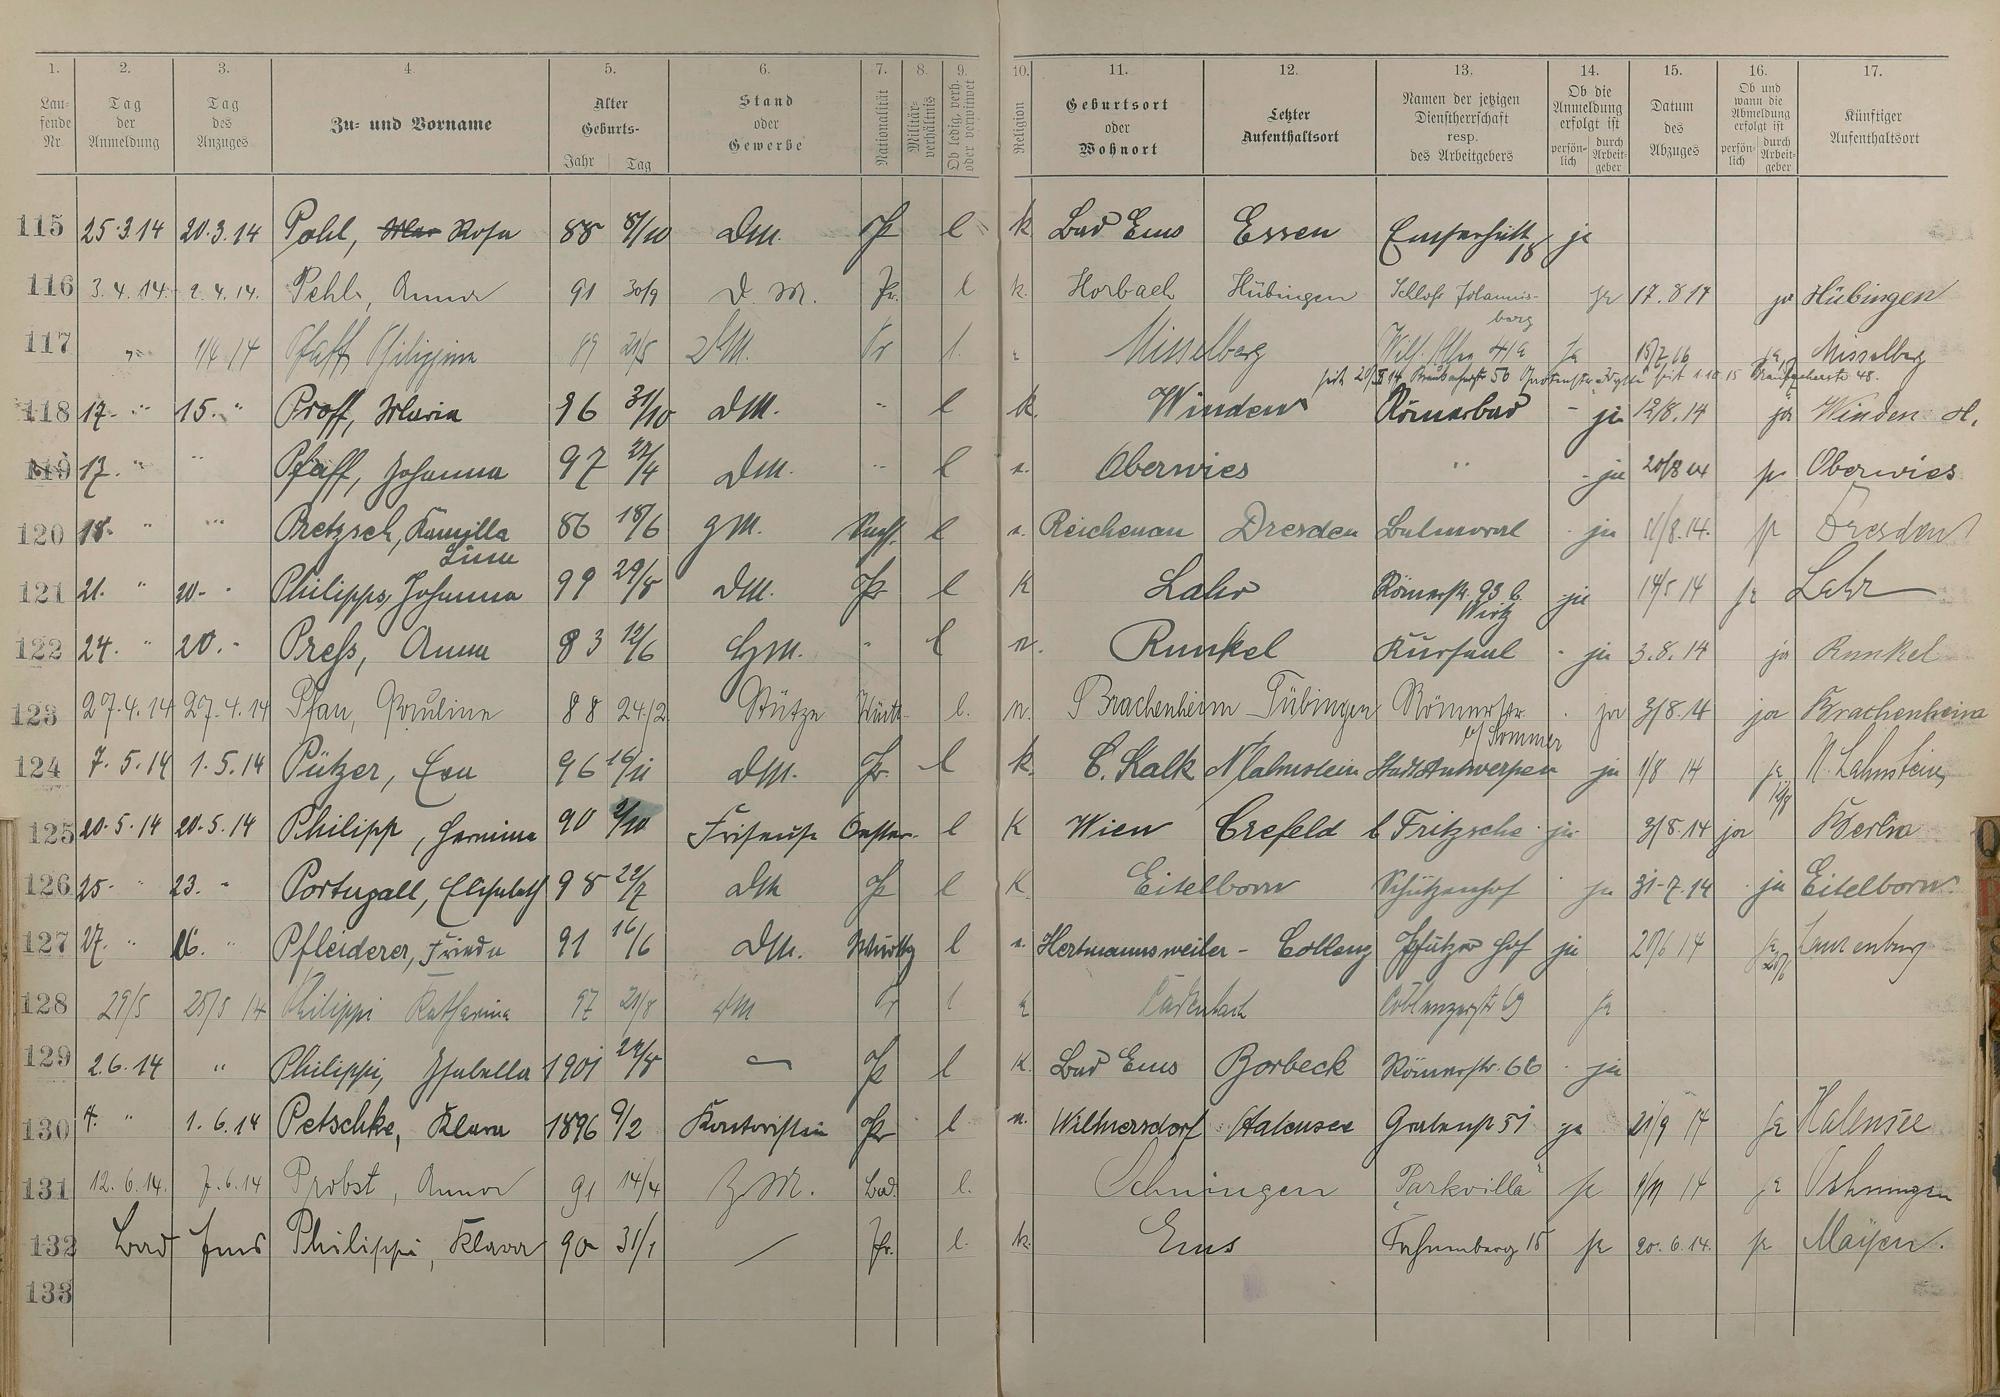 1. 2. 3. 4. 5. 6. 7. 8. 9. 10. 11. 12. 13. 14. 15. 16. 17.
Lau-fende Nr. Tag der Anmeldung Tag des Anzuges Zu- und Vorname Alter Geburts- Jahr Tag Stand oder Gewerbe Nationalität Militär-verhältnis Ob ledig, verh. oder verwitwet Religion Geburtsort oder Wohnort Letzter Aufenthaltsort Namen der jetzigen Dienstherrschaft resp. des Arbeitgebers Ob die Anmeldung erfolgt ist persön-lich durch Arbeit-geber Datum des Abzuges Ob und wann die Abmeldung erfolgt ist persön-lich durch Arbeit-geber Künftiger Aufenthaltsort
115 25.3.14 20.3.14 Pohl, Rosa 88 8/10 DM. Pr l k Bad Ems Essen Emserhütt 18 ja
116 3.4.14. 2.4.14. Pehl, Anna 91 30/9 D.M. Pr. l k. Horbach Hübingen Schloß Johannis-berg ja 17.8 14 ja Hübingen
117 " 1/4 14 Pfaff Philippina 89 21/5 DM. Pr l. Misselberg ja 15/7 16 ja Misselberg
118 17. " 15. " Proff, Maria 96 31/10 DM. " l k. Winden Römerbad - ja 12/8.14 ja Winden
119 17. " " Pfaff, Johanna 97 22/4 DM. " l Oberwies " - ja 20/8 14 ja Oberwies
120 18. " " Pretzsch, Kamilla Lina 86 18/6 ZM. Sachs. l Reichenau Dresden Balmoral ja 11/8.14. ja Dresden
121 21. " 20. " Philipps, Johanna 99 29/8 DM. Pr l K Lahr Römerstr. 93 b. Wirtz ja 14/5 14 ja Lahr
122 24. " 20. " Preß, Anna 83 12/6 " l Runkel Kursaal - ja 3.8.14 ja Runkel
123 27.4.14 27.4.14 Pfau, Pauline 88 24/2 Stütze Württ. l. Brachenheim Tübingen Römerstr. b/ Sommer ja 3/8.14 ja Brachenheim
124 7.5.14 1.5.14 Pützer, Eva 96 16/11 DM. Pr. l k. C. Kalk N/lahnstein Stadt Antwerpen ja 1/8 14 ja N. Lahnstein
125 20.5.14 20.5.14 Philipp, Hermine 90 9/10 Friseuse Oester. l K Wien Crefeld b Fritzsche ja 3/8.14 ja Berlin
126 25. " 23. " Portugall, Elisabeth 98 22/7 DM Pr l K. Eitelborn Schützenhof ja 31.7.14 ja Eitelborn
127 27. " 26. " Pfleiderer, Frieda 91 16/6 DM. Württbg l Hertmannsweiler - Coblenz Pfälzer Hof ja 20/6 14 ja
128 29/5 25/5 14 Philippi Katharina 97 21/8 DM Pr l Coblenzerstr 69 ja
129 2.6.14 " Philippi, Isabella 1901 Pr l K. Bad Ems Borbeck Römerstr. 66 ja
130 4. " 1.6.14 Petschke, Klara 1896 9/2 Kontoristin Pr l Wilmersdorf Halensee Grabenstr 51 ja 21/9 14 ja Halensee
131 12.6.14. 7.6.14 Probst, Anna 91 14/4 Z.M. Bad. l. Oehningen "Parkvilla" ja 1/11 14 ja Oehningen
132 Bad Ems Philippi, Klara 90 31/1 Pr. l. k. Ems Fahnenberg 15 ja 20.6.14. ja Mayen.
133